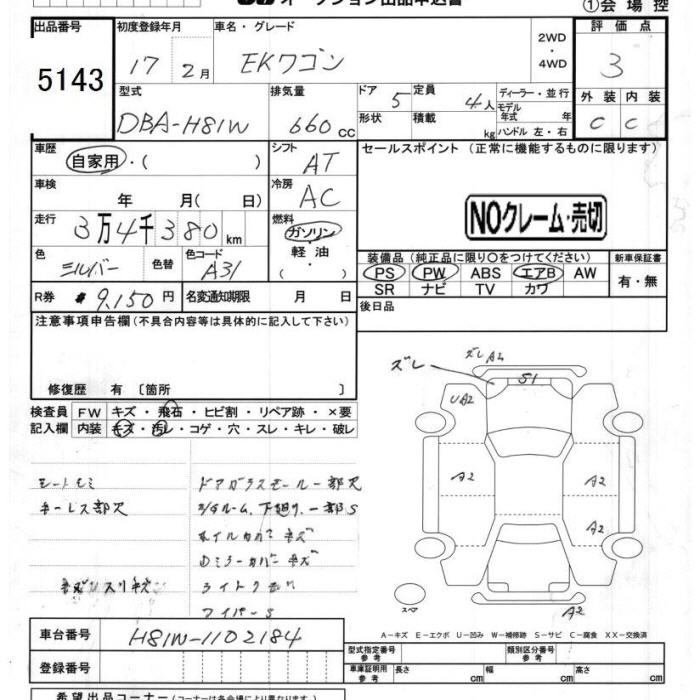 オークション出品申込書
①会場控
出品番号
5143
初度登録年月
17 2月
車名・グレード
EKワゴン
2WD
・
4WD
評価点
3
型式
DBA-H81W
排気量
660 cc
ドア 5
形状
定員 4人
積載 kg
ディーラー・並行
モデル年式 年
ハンドル 左・右
外装 内装
C C
車歴
自家用・( )
シフト
AT
セールスポイント (正常に機能するものに限ります)
車検
年 月( 日)
冷房
AC
NOクレーム・売切
走行
3万4千380 km
燃料
ガソリン
・
軽油
・
( )
色
シルバー
色替
色コード
A31
装備品 (純正品に限り〇をつけてください)
新車保証書
PS PW ABS エアB AW
SR ナビ TV カワ
有・無
R券 9,150円
名変通知期限 月 日
後日品
注意事項申告欄 (不具合内容等は具体的に記入して下さい)
修復歴 有 〔箇所 〕
検査員
記入欄
FW キズ・飛石・ヒビ割・リペア跡・×要
内装 キズ・汚レ・コゲ・穴・スレ・キレ・破レ
ズレ
ズレA2
S1
UA2
A2
A2
A2
A2
スペア
キーレス部欠
ドアガラスモール一部欠
ホイルカバーキズ
Dミラーカバーキズ
ワイパーS
A－キズ E－エクボ U－凹み W－補修跡 S－サビ C－腐食 XX－交換済
車台番号
H81W-1102184
登録番号
型式指定番号
参考
類別区分番号
参考
車庫証明用
参考
長さ cm
幅 cm
高さ cm
希望出品コーナー (コーナーは各会場により異なります。)